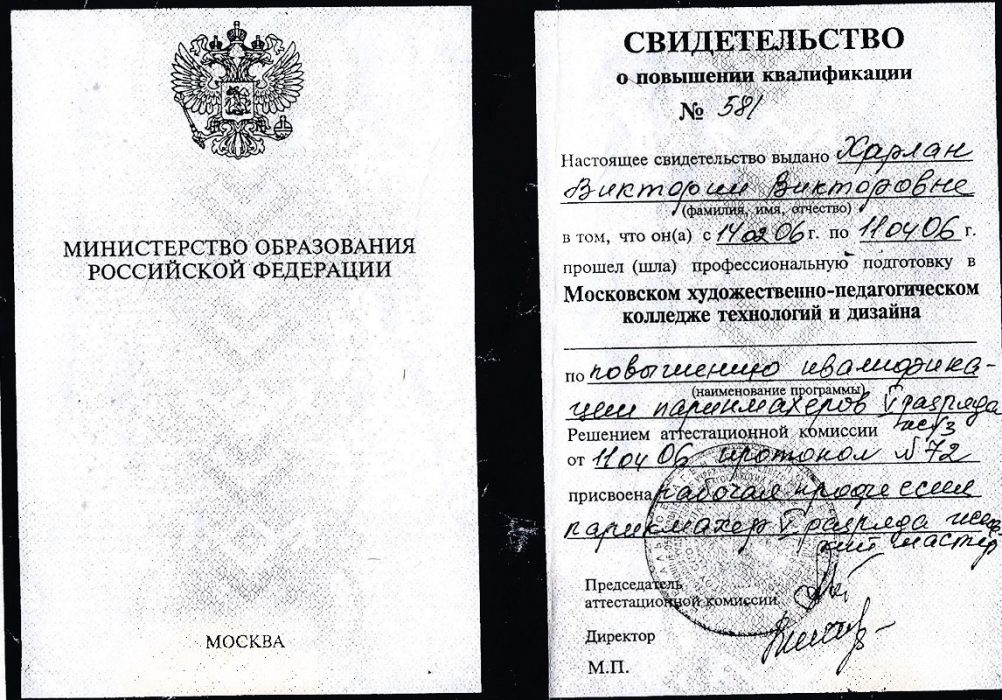 МИНИСТЕРСТВО ОБРАЗОВАНИЯ
РОССИЙСКОЙ ФЕДЕРАЦИИ
МОСКВА
СВИДЕТЕЛЬСТВО
о повышении квалификации
№ 581
Настоящее свидетельство выдано Харлан
Виктории Викторовне
(фамилия, имя, отчество)
в том, что он(а) с 14 02 06 г. по 11 04 06 г.
прошел (шла) профессиональную подготовку в
Московском художественно-педагогическом
колледже технологий и дизайна
по повышению квалифика-
(наименование программы)
ции парикмахеров V разряда
Решением аттестационной комиссии
от 11 04 06 протокол № 72
присвоена рабочая профессия
парикмахер V разряда женс
кий мастер
Председатель
аттестационной комиссии
Директор
М.П.